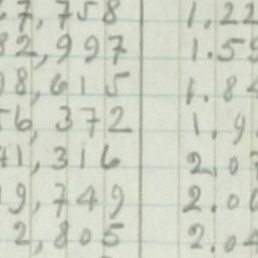 7,758 1.22
82,997 1.59
98,615 1.84
56,372 1.9
41,316 2.07
19,749 2.00
2,805 2.04